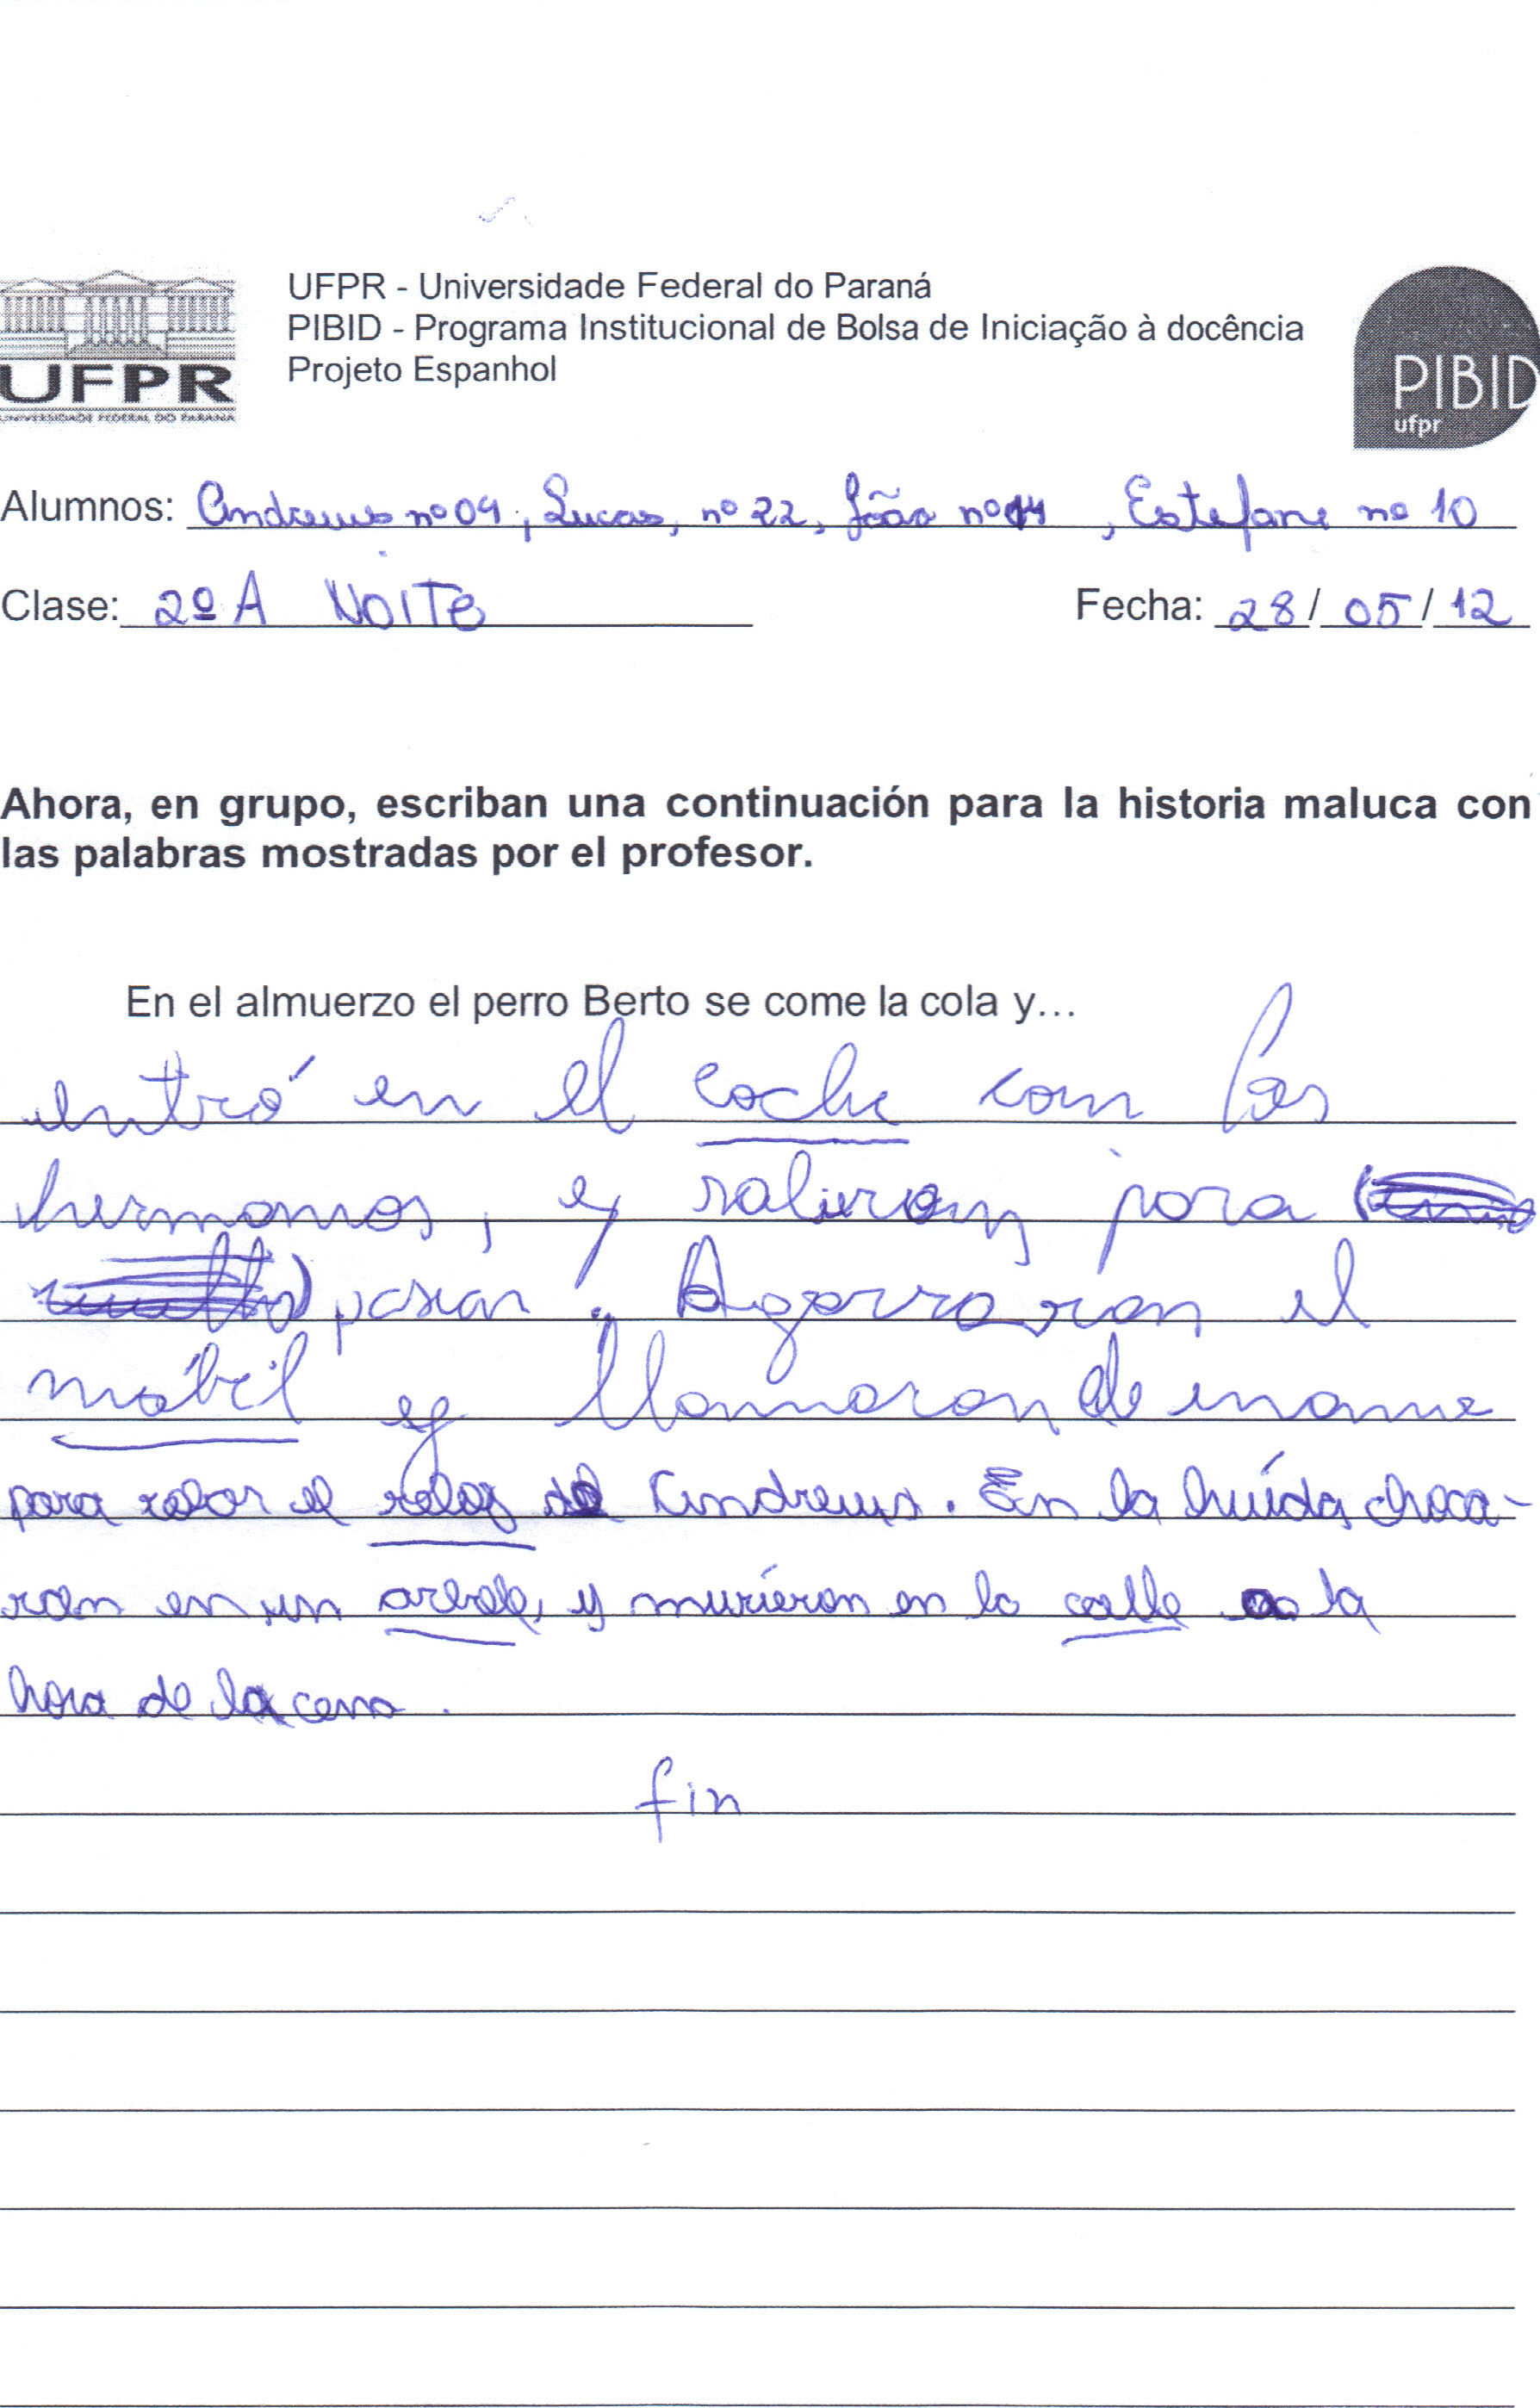 UFPR - Universidade Federal do Paraná
PIBID - Programa Institucional de Bolsa de Iniciação à docência
Projeto Espanhol
UFPR
UNIVERSIDADE FEDERAL DO PARANÁ
PIBID
ufpr
Alumnos: Andrews nº 09, Lucas, nº 22, João nº 14, Estefane nº 10
Clase: 2º A NOITE Fecha: 28/05/12
Ahora, en grupo, escriban una continuación para la historia maluca con
las palabras mostradas por el profesor.
En el almuerzo el perro Berto se come la cola y...
entró en el coche com los
hermanos, y salieron para
pasear. Agarraron el
móbil y llamaron de
para robar el reloj de Andrews. En la huída choca-
ran en un arbole, y murieron en la calle a la
hora de la cena.
fin